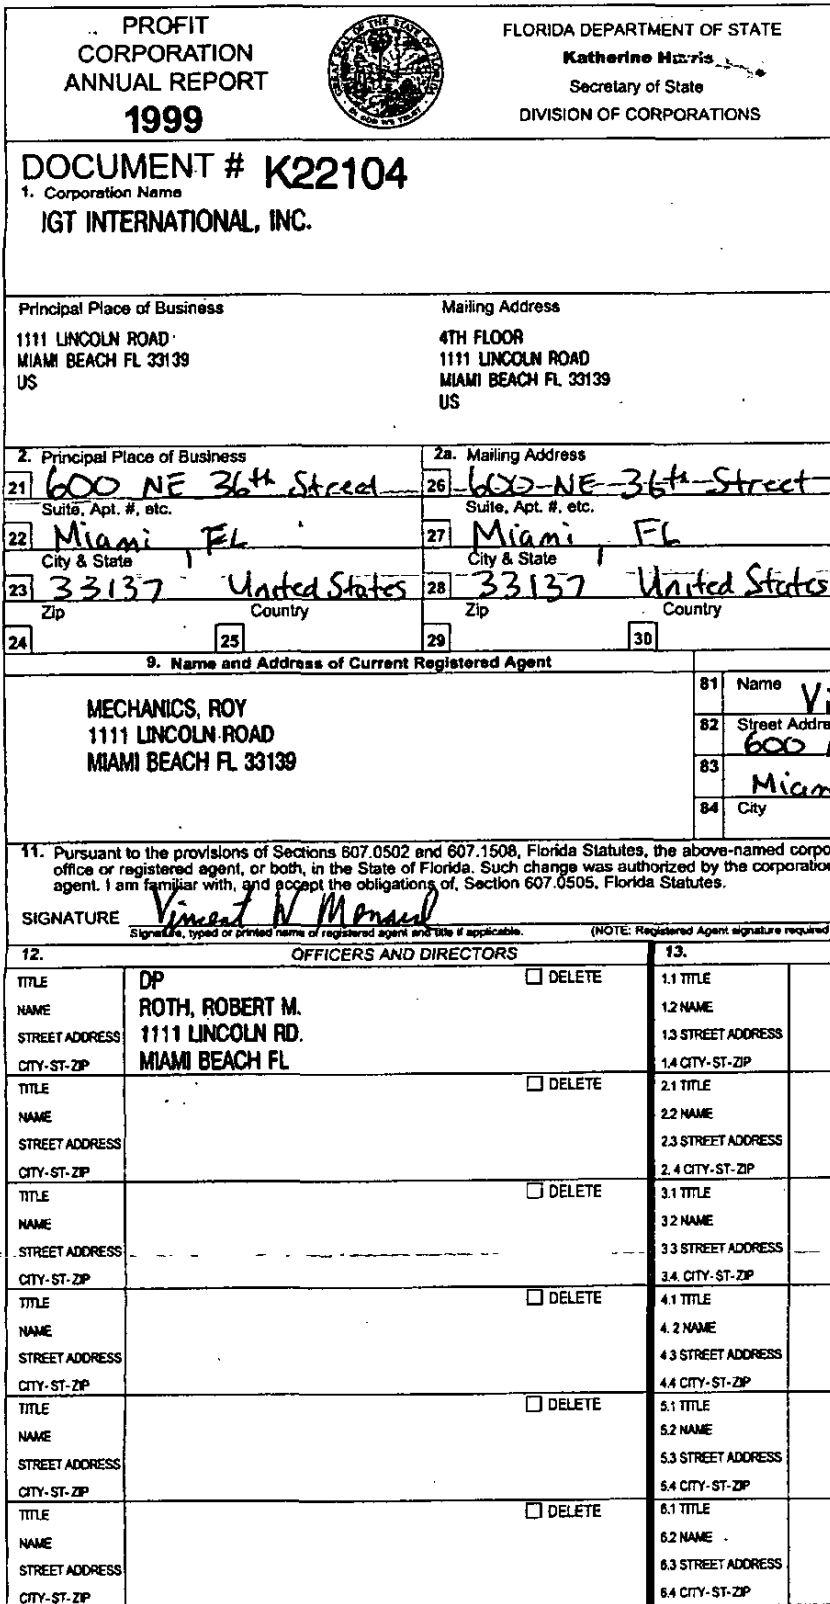 PROFIT
CORPORATION
ANNUAL REPORT
1999
FLORIDA DEPARTMENT OF STATE
Katherine Harris
Secretary of State
DIVISION OF CORPORATIONS
DOCUMENT # K22104
1. Corporation Name
IGT INTERNATIONAL, INC.
Principal Place of Business
1111 LINCOLN ROAD
MIAMI BEACH FL 33139
US
Mailing Address
4TH FLOOR
1111 LINCOLN ROAD
MIAMI BEACH FL 33139
US
2. Principal Place of Business
21 600 NE 36th Street
Suite, Apt. #, etc.
22 Miami, FL
City & State
23 33137 United States
Zip Country
24 25
2a. Mailing Address
26 600 NE 36th Street
Suite, Apt. #, etc.
27 Miami, FL
City & State
28 33137 United States
Zip Country
29 30
9. Name and Address of Current Registered Agent
MECHANICS, ROY
1111 LINCOLN ROAD
MIAMI BEACH FL 33139
81 Name Vi
82 Street Addre
600
83 Miam
84 City
11. Pursuant to the provisions of Sections 607.0502 and 607.1508, Florida Statutes, the above-named corpo
office or registered agent, or both, in the State of Florida. Such change was authorized by the corporation
agent. I am familiar with, and accept the obligations of, Section 607.0505, Florida Statutes.
SIGNATURE Vincent W
Signature, typed or printed name of registered agent and title if applicable. (NOTE: Registered Agent signature required
12. OFFICERS AND DIRECTORS 13.
TITLE DP DELETE 1.1 TITLE
NAME ROTH, ROBERT M. 1.2 NAME
STREET ADDRESS 1111 LINCOLN RD. 1.3 STREET ADDRESS
CITY-ST-ZIP MIAMI BEACH FL 1.4 CITY-ST-ZIP
TITLE DELETE 2.1 TITLE
NAME 2.2 NAME
STREET ADDRESS 2.3 STREET ADDRESS
CITY-ST-ZIP 2.4 CITY-ST-ZIP
TITLE DELETE 3.1 TITLE
NAME 3.2 NAME
STREET ADDRESS 3.3 STREET ADDRESS
CITY-ST-ZIP 3.4. CITY-ST-ZIP
TITLE DELETE 4.1 TITLE
NAME 4.2 NAME
STREET ADDRESS 4.3 STREET ADDRESS
CITY-ST-ZIP 4.4 CITY-ST-ZIP
TITLE DELETE 5.1 TITLE
NAME 5.2 NAME
STREET ADDRESS 5.3 STREET ADDRESS
CITY-ST-ZIP 5.4 CITY-ST-ZIP
TITLE DELETE 6.1 TITLE
NAME 6.2 NAME
STREET ADDRESS 6.3 STREET ADDRESS
CITY-ST-ZIP 6.4 CITY-ST-ZIP